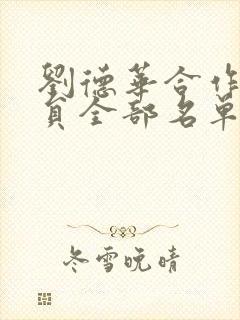 劉德華合作
員全部名單
冬雪晚晴